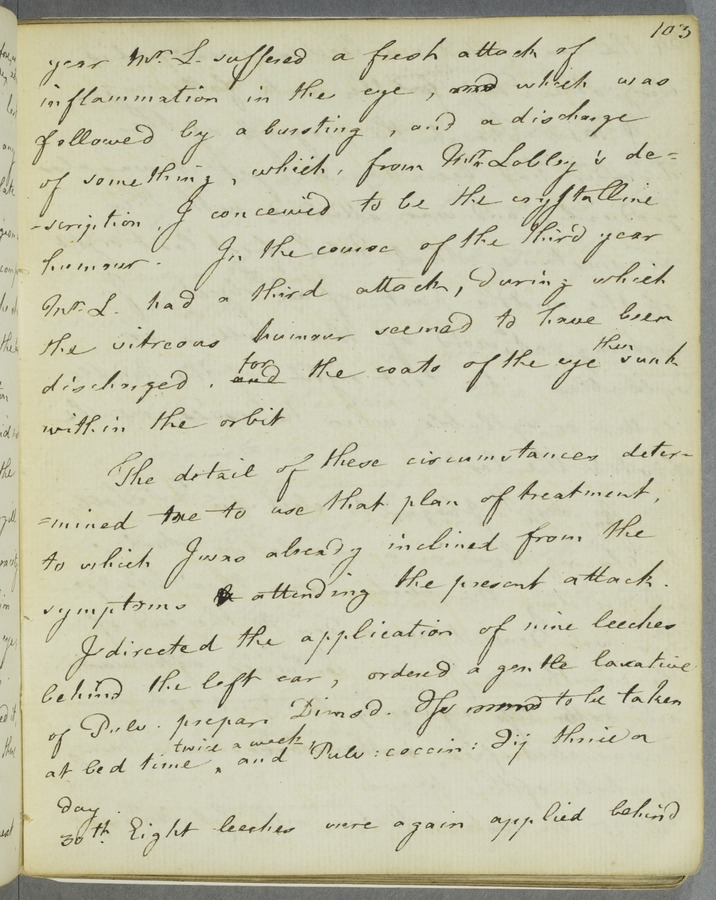 103
year Mr. L. suffered a fresh attack of
inflammation in the eye, and which was
followed by a bursting, and a discharge
of something, which, from Mr. Lobley's de=
-scription, I conceived to be the crystalline
humour. In the course of the third year
Mr. L. had a third attack, during which
the vitreous humour seemed to have been
discharged, and for the coats of the eye then sunk
within the orbit
The detail of these circumstances deter=
=mined me to use that plan of treatment,
to which I was already inclined from the
symptoms attending the present attack.
I directed the application of nine leeches
behind the left ear, ordered a gentle laxative
of Pulv. prepar. to be taken
at bed time twice a week, and Pulv: coccin: Ʒij thrice a
day.
30th. Eight leeches were again applied behind